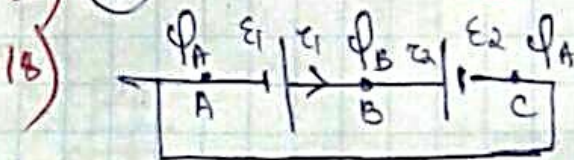 18)
φA ε1 r1 φB r2 ε2 φA
A B C